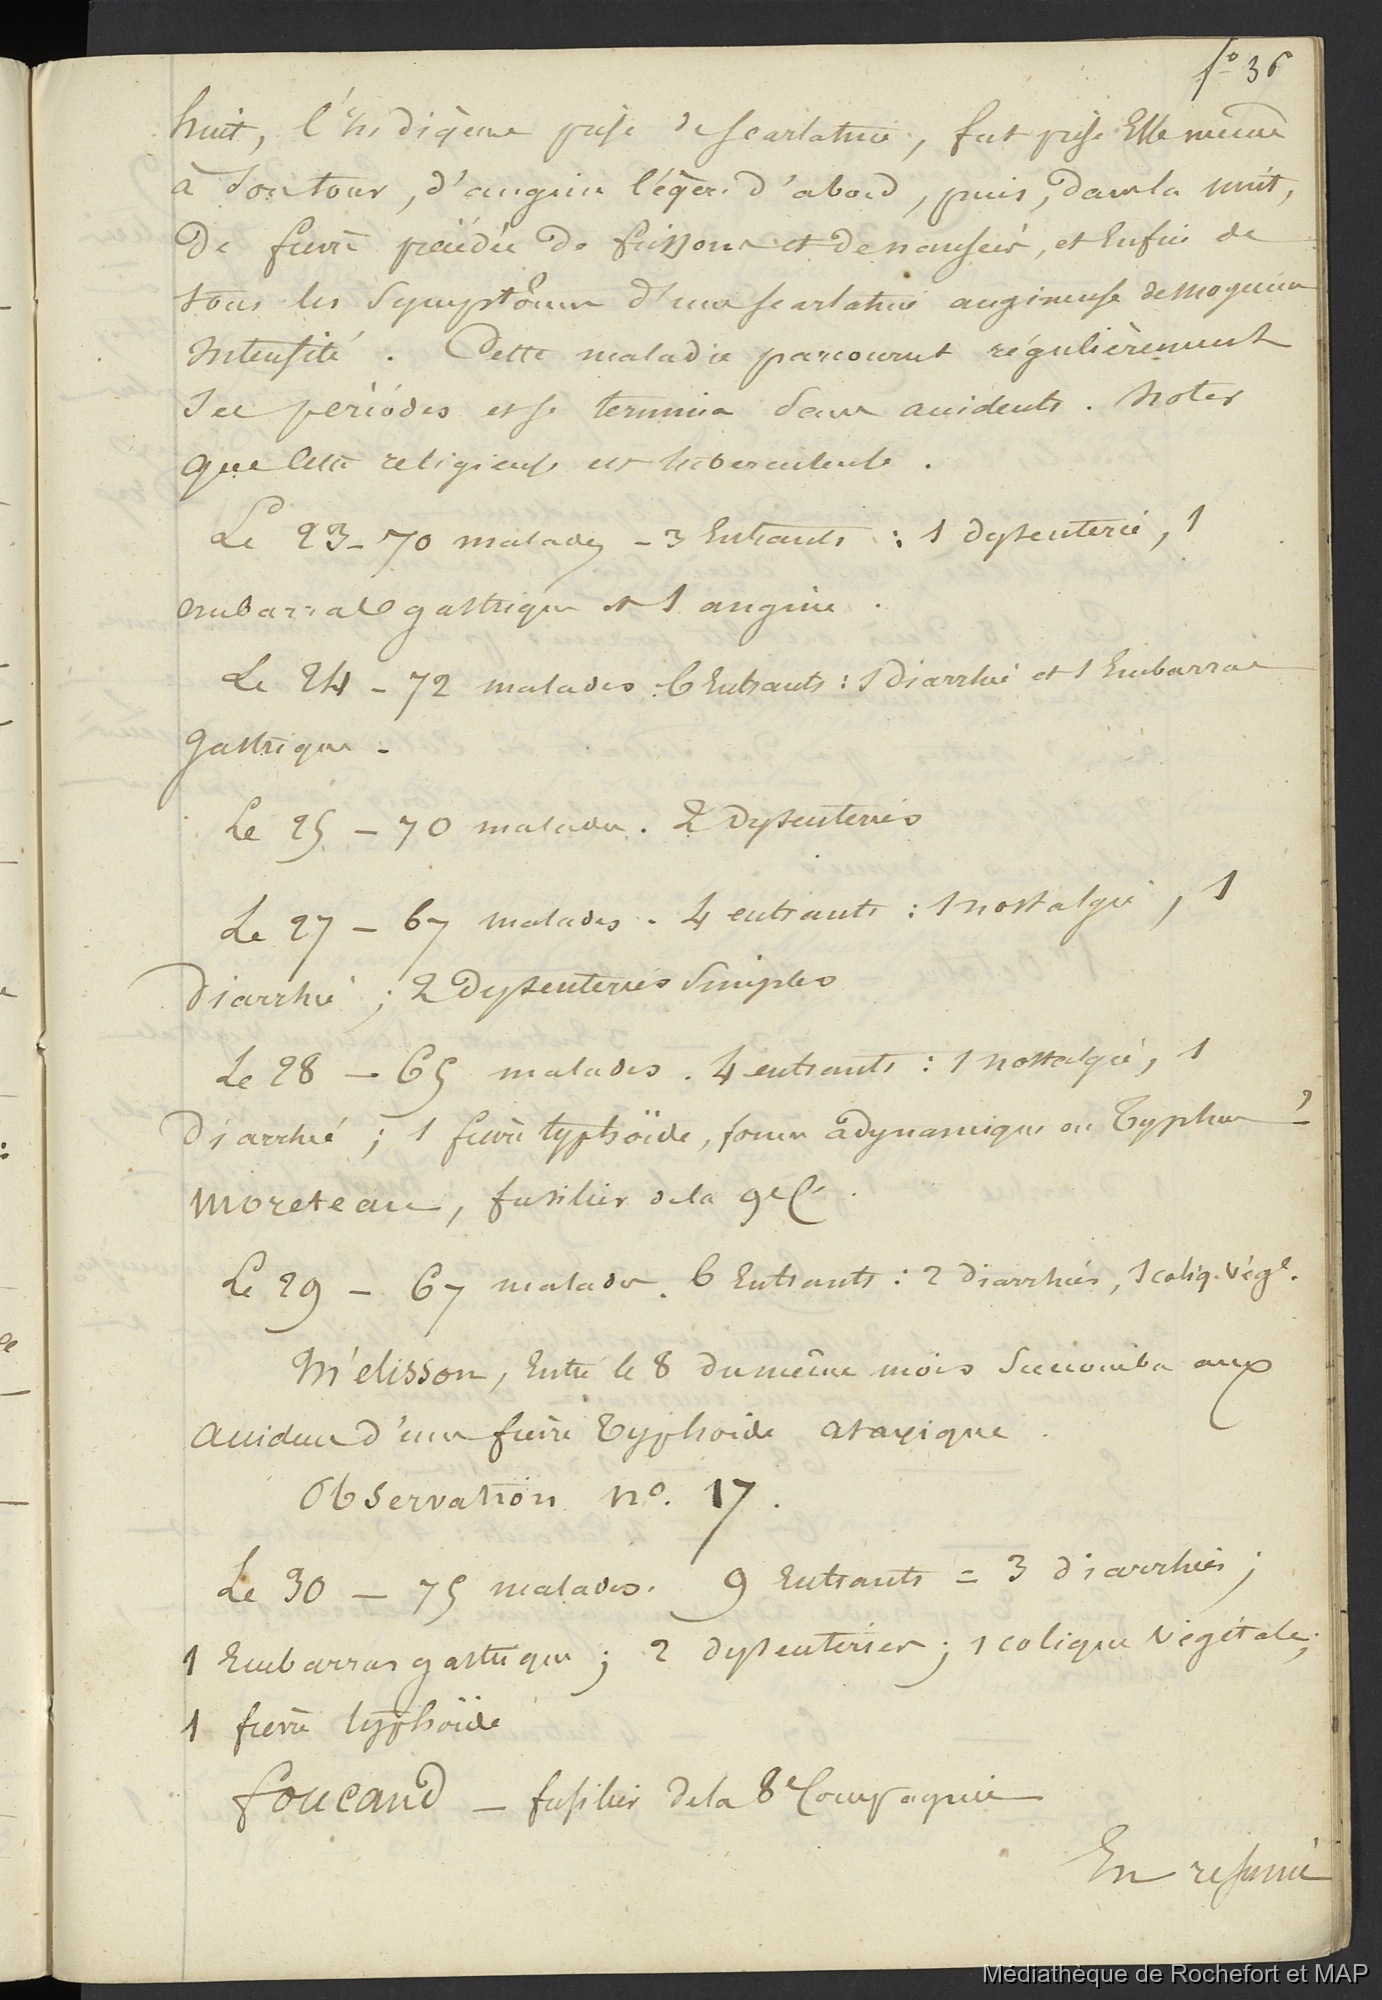 fo 36
huit, l'indigène prise de scarlatine, fut prise Elle même
à son tour, d'angine légère d'abord, puis, dans la nuit,
de fièvre précédée de frissons et de nausées, et Enfin de
tous les symptômes d'une scarlatine angineuse de moyenne
intensité. Cette maladie parcourut régulièrement
ses périodes et se termina sans accidents. Noter
que cette religieuse est tuberculeuse.
Le 23 - 70 malades - 3 Entrants : 1 dysenterie, 1
embarras gastrique et 1 angine.
Le 24 - 72 malades. 6 Entrants : 1 Diarrhée et 1 Embarras
gastrique -
Le 25 - 70 malades. 2 Dysenteries
Le 27 - 67 malades. 4 entrants : 1 nostalgie, 1
Diarrhée ; 2 Dysenteries simples
Le 28 - 65 malades. 4 entrants : 1 nostalgie, 1
Diarrhée ; 1 fièvre typhoïde, forme adynamique ou Typhus ?
Moreteau, fusilier de la 9e Cie.
Le 29 - 67 malades. 6 Entrants : 2 diarrhées, 1 coliq. végle.
Mélisson, Entré le 8 du même mois succomba aux
accidens d'une fièvre Typhoïde ataxique.
Observation no. 17.
Le 30 - 75 malades. 9 Entrants = 3 diarrhées ;
1 Embarras gastrique ; 2 dysenteries ; 1 colique végétale ;
1 fièvre typhoïde
Foucaud - fusilier de la 8e Compagnie
En resumé
Médiathèque de Rochefort et MAP